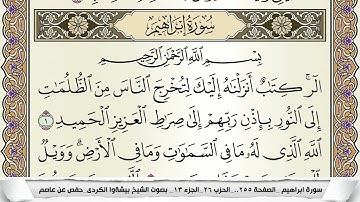 سُورَةُ إِبْرَاهِيمَ
بِسْمِ ٱللَّهِ ٱلرَّحْمَٰنِ ٱلرَّحِيمِ
الٓر ۚ كِتَٰبٌ أَنزَلْنَٰهُ إِلَيْكَ لِتُخْرِجَ ٱلنَّاسَ مِنَ ٱلظُّلُمَٰتِ
إِلَى ٱلنُّورِ بِإِذْنِ رَبِّهِمْ إِلَىٰ صِرَٰطِ ٱلْعَزِيزِ ٱلْحَمِيدِ ١
ٱللَّهِ ٱلَّذِى لَهُۥ مَا فِى ٱلسَّمَٰوَٰتِ وَمَا فِى ٱلْأَرْضِ ۗ وَوَيْلٌ
سورة ابراهيم _الصفحة ٢٥٥.._الحزب ٢٦_الجزء ١٣_ بصوت الشيخ بيشةوا الكردى_حفص عن عاصم